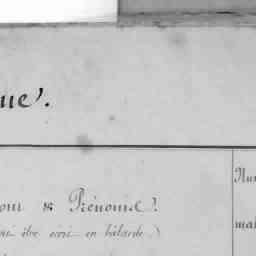 ue).
Nu
om & Prénoms).
être écrit en bâtarde.)
mat